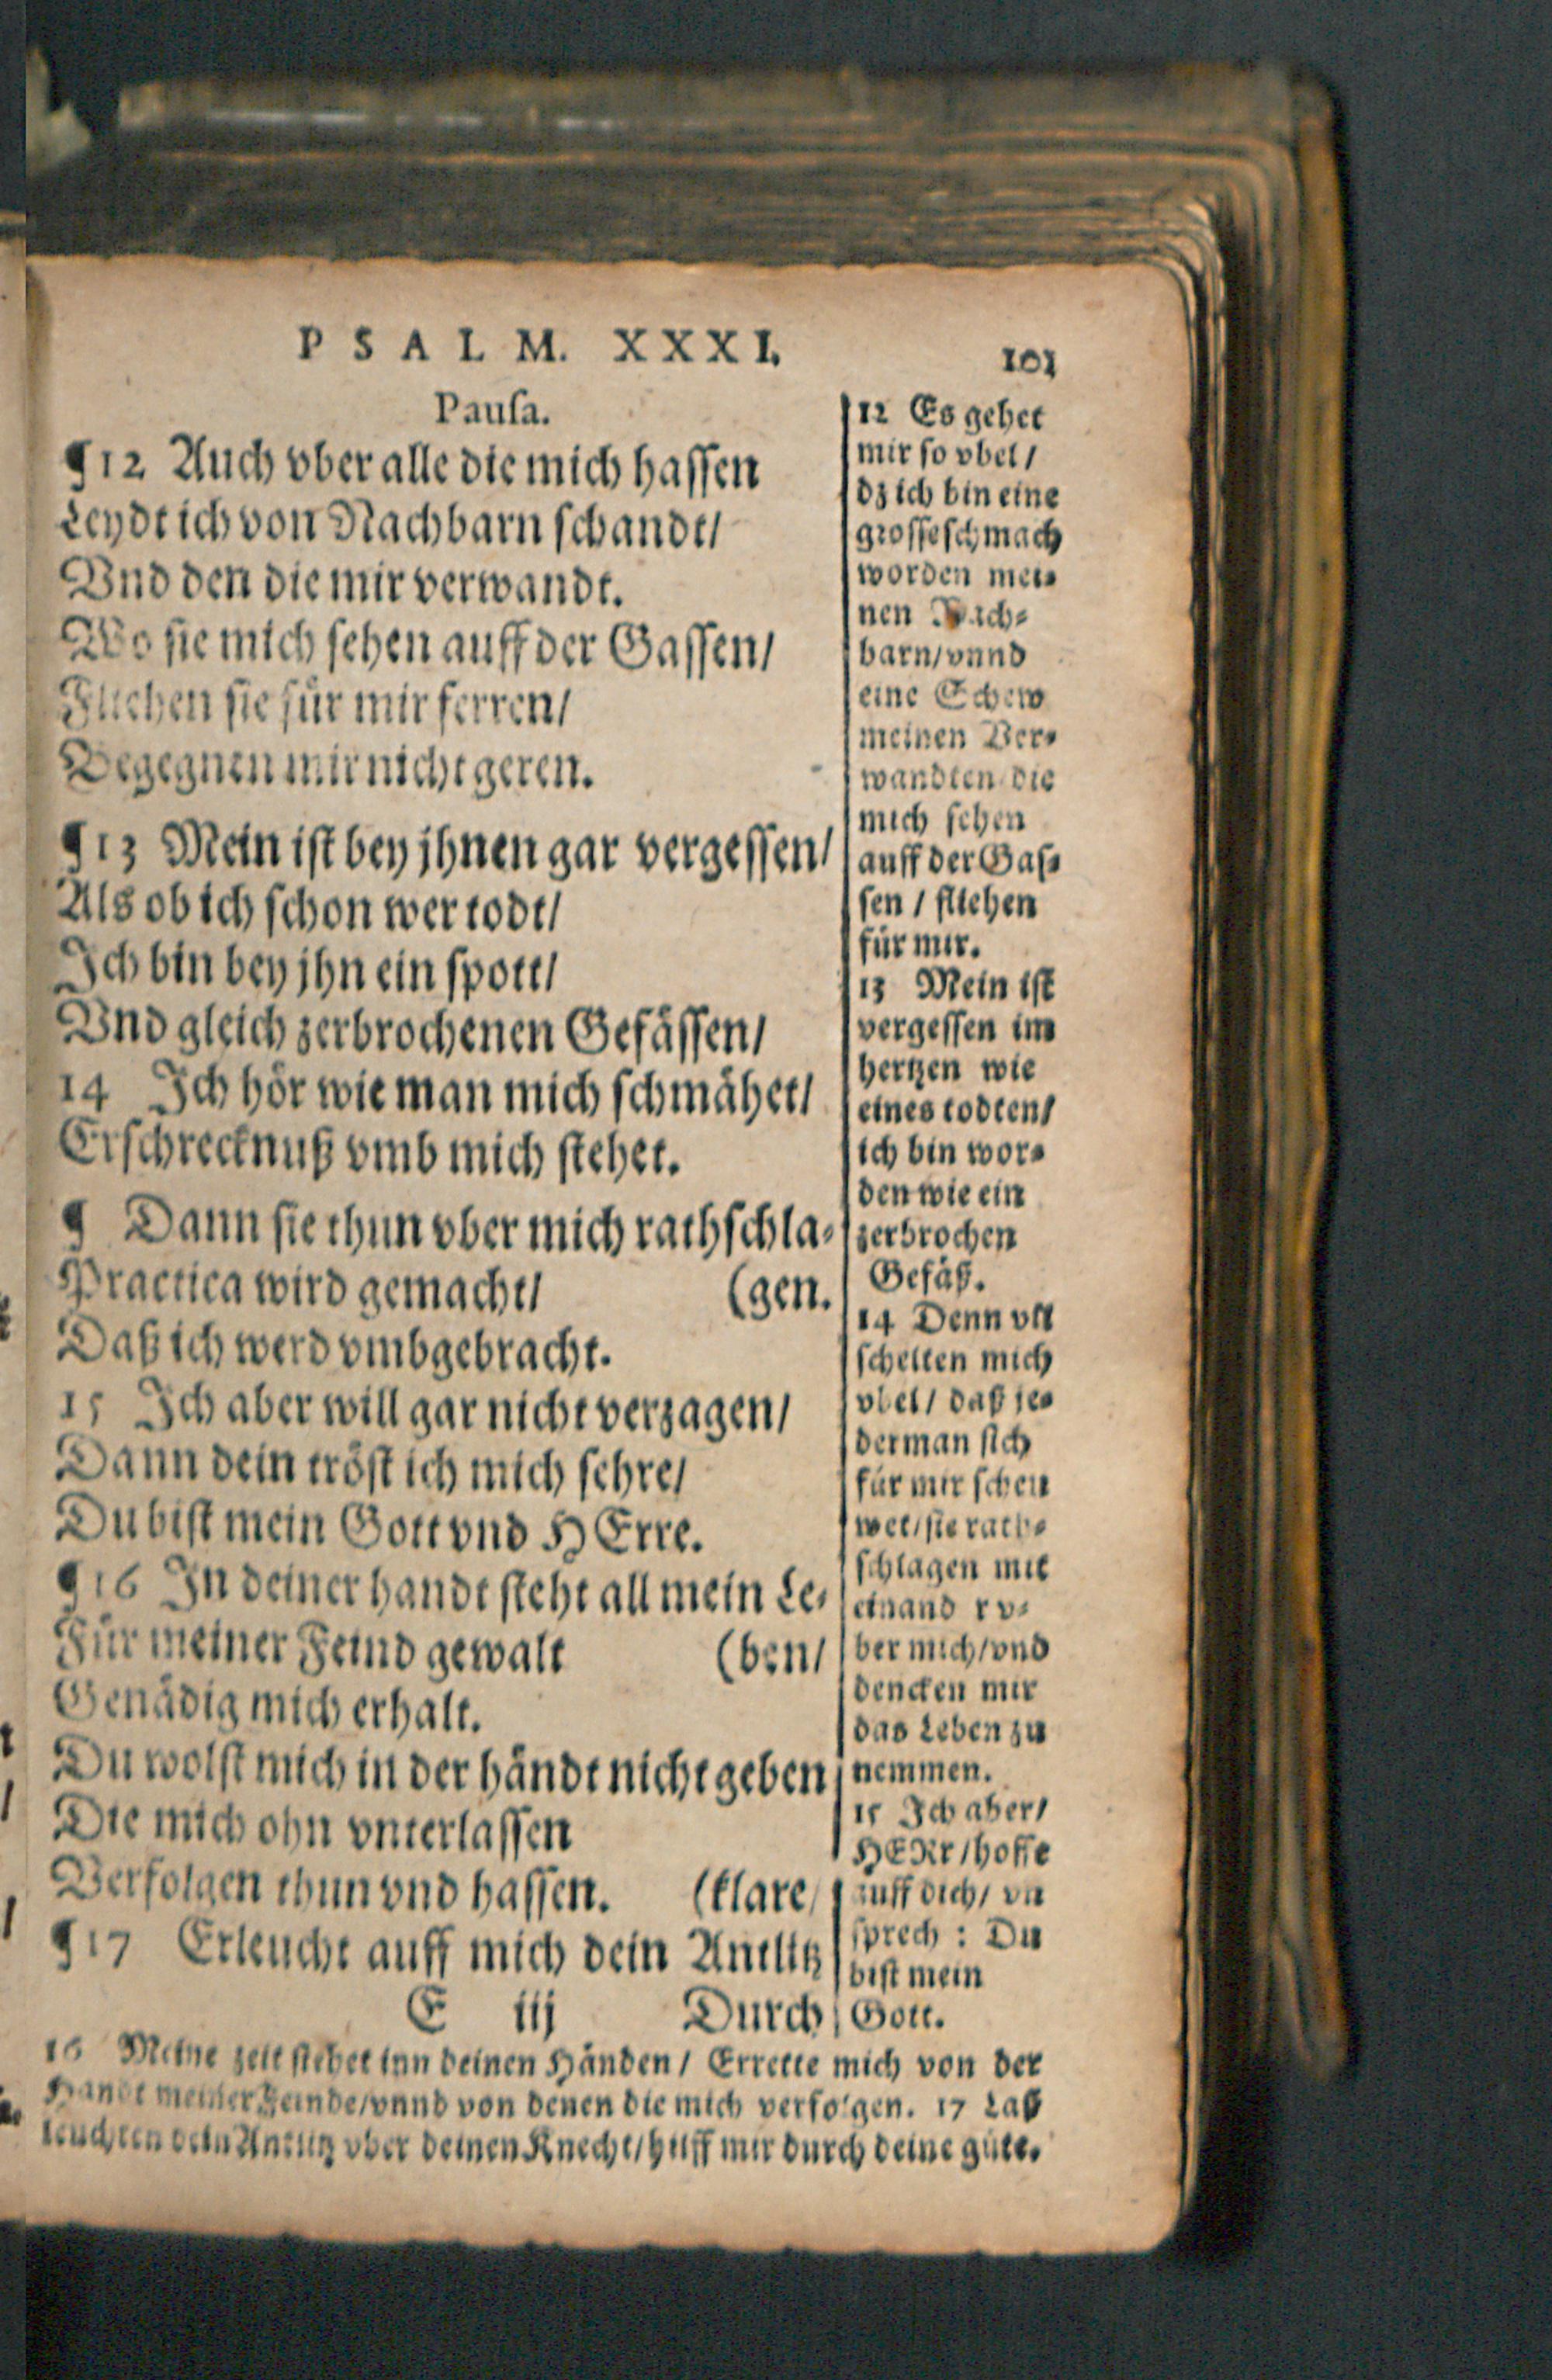 PSALM. XXXI.
101
Pausa.
¶12 Auch vber alle die mich hassen
Leydt ich von Nachbarn schandt/
Vnd den die mir verwandt.
Wo sie mich sehen auff der Gassen/
Fliehen sie für mir ferren/
Begegnen mir nicht geren.
¶13 Mein ist bey jhnen gar vergessen/
Als ob ich schon wer todt/
Ich bin bey jhn ein spott/
Vnd gleich zerbrochenen Gefässen/
14 Ich hör wie man mich schmähet/
Erschrecknuß vmb mich stehet.
¶ Dann sie thun vber mich rathschla-
Practica wird gemacht/ (gen.
Daß ich werd vmbgebracht.
15 Ich aber will gar nicht verzagen/
Dann dein tröst ich mich sehre/
Du bist mein Gott vnd HErre.
¶16 In deiner handt steht all mein Le-
Für meiner Feind gewalt (ben/
Genädig mich erhalt.
Du wolst mich in der händt nicht geben
Die mich ohn vnterlassen
Verfolgen thun vnd hassen. (klare/
¶17 Erleucht auff mich dein Antlitz
E iij Durch
12 Es gehet
mir so vbel/
dz ich bin eine
grosse schmach
worden mei-
nen Nach-
barn/vnnd
eine Schew
meinen Ver-
wandten die
mich sehen
auff der Gas-
sen / fliehen
für mir.
13 Mein ist
vergessen im
hertzen wie
eines todten/
ich bin wor-
den wie ein
zerbrochen
Gefäß.
14 Denn vil
schelten mich
vbel/ daß je-
derman sich
für mir scheu
wet/sie rath-
schlagen mit
einand r v-
ber mich/vnd
dencken mir
das Leben zu
nemmen.
15 Ich aber/
HERr/hoffe
auff dich/ vn
sprech : Du
bist mein
Gott.
16 Meine zeit stehet inn deinen Händen / Errette mich von der
Handt meiner Feinde/vnnd von denen die mich verfolgen. 17 Laß
leuchten dein Antlitz vber deinen Knecht/hilff mir durch deine güte.